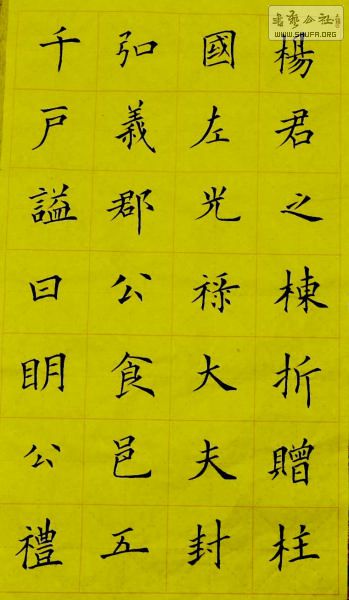 楊君之棟折贈柱
國左光祿大夫封
弘義郡公食邑五
千戸謚曰明公禮
書藝公社
WWW.SHUFA.ORG